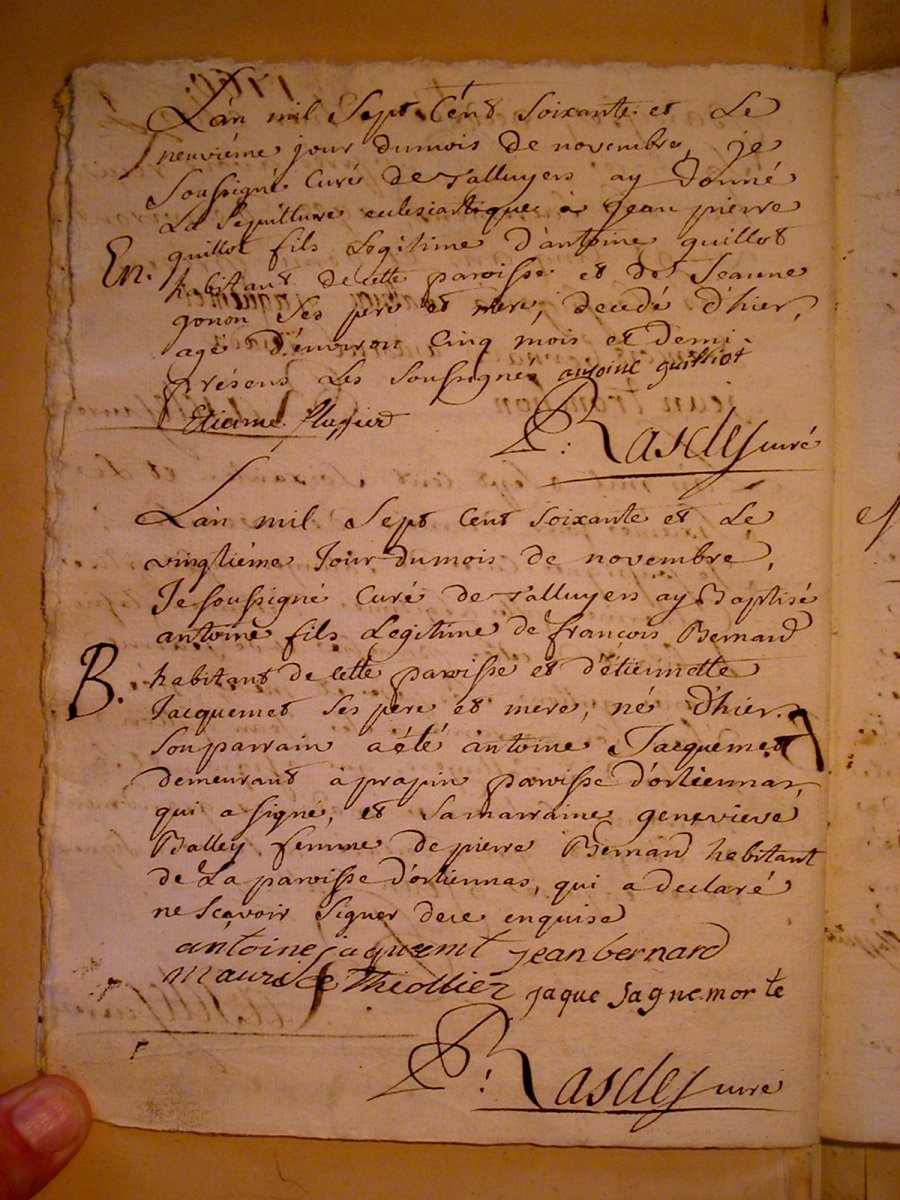 L'an mil Sept Cent Soixante et Le
neuviéme jour dumois de novembre, je
Soussigné Curé de Talluyers ay donné
La Sepulture eclesiastique a Jean pierre
guillot fils Legitime d'antoine guillot
En. habitant de cette paroisse et de Jeanne
gonon Ses pere et mere, decedé d'hier,
agé d'environ Cinq mois et demi
présens Les Soussignes antoine guilliot
Etienne
P: Rasdes curé
L'an mil Sept Cent Soixante et Le
vingtiéme Jour dumois de novembre,
Je soussigné Curé de Talluyers ay Baptisé
antoine fils Legitime de françois Bernard
B. habitant de cette paroisse et d'étiennette
Jacquemet Ses pere et mere, né d'hier.
Son parrain a été antoine Jacquemet
demeurant à prapin paroisse d'orliennas,
qui a signé, et Samarraine genevieve
Balley femme de pierre Bernard habitant
de La paroisse d'orliennas, qui a declaré
ne Scavoir Signer de ce enquise
antoine jaquemt jean bernard
maurise Thiollier jaque Sagne.morte
P: Rasdes curé